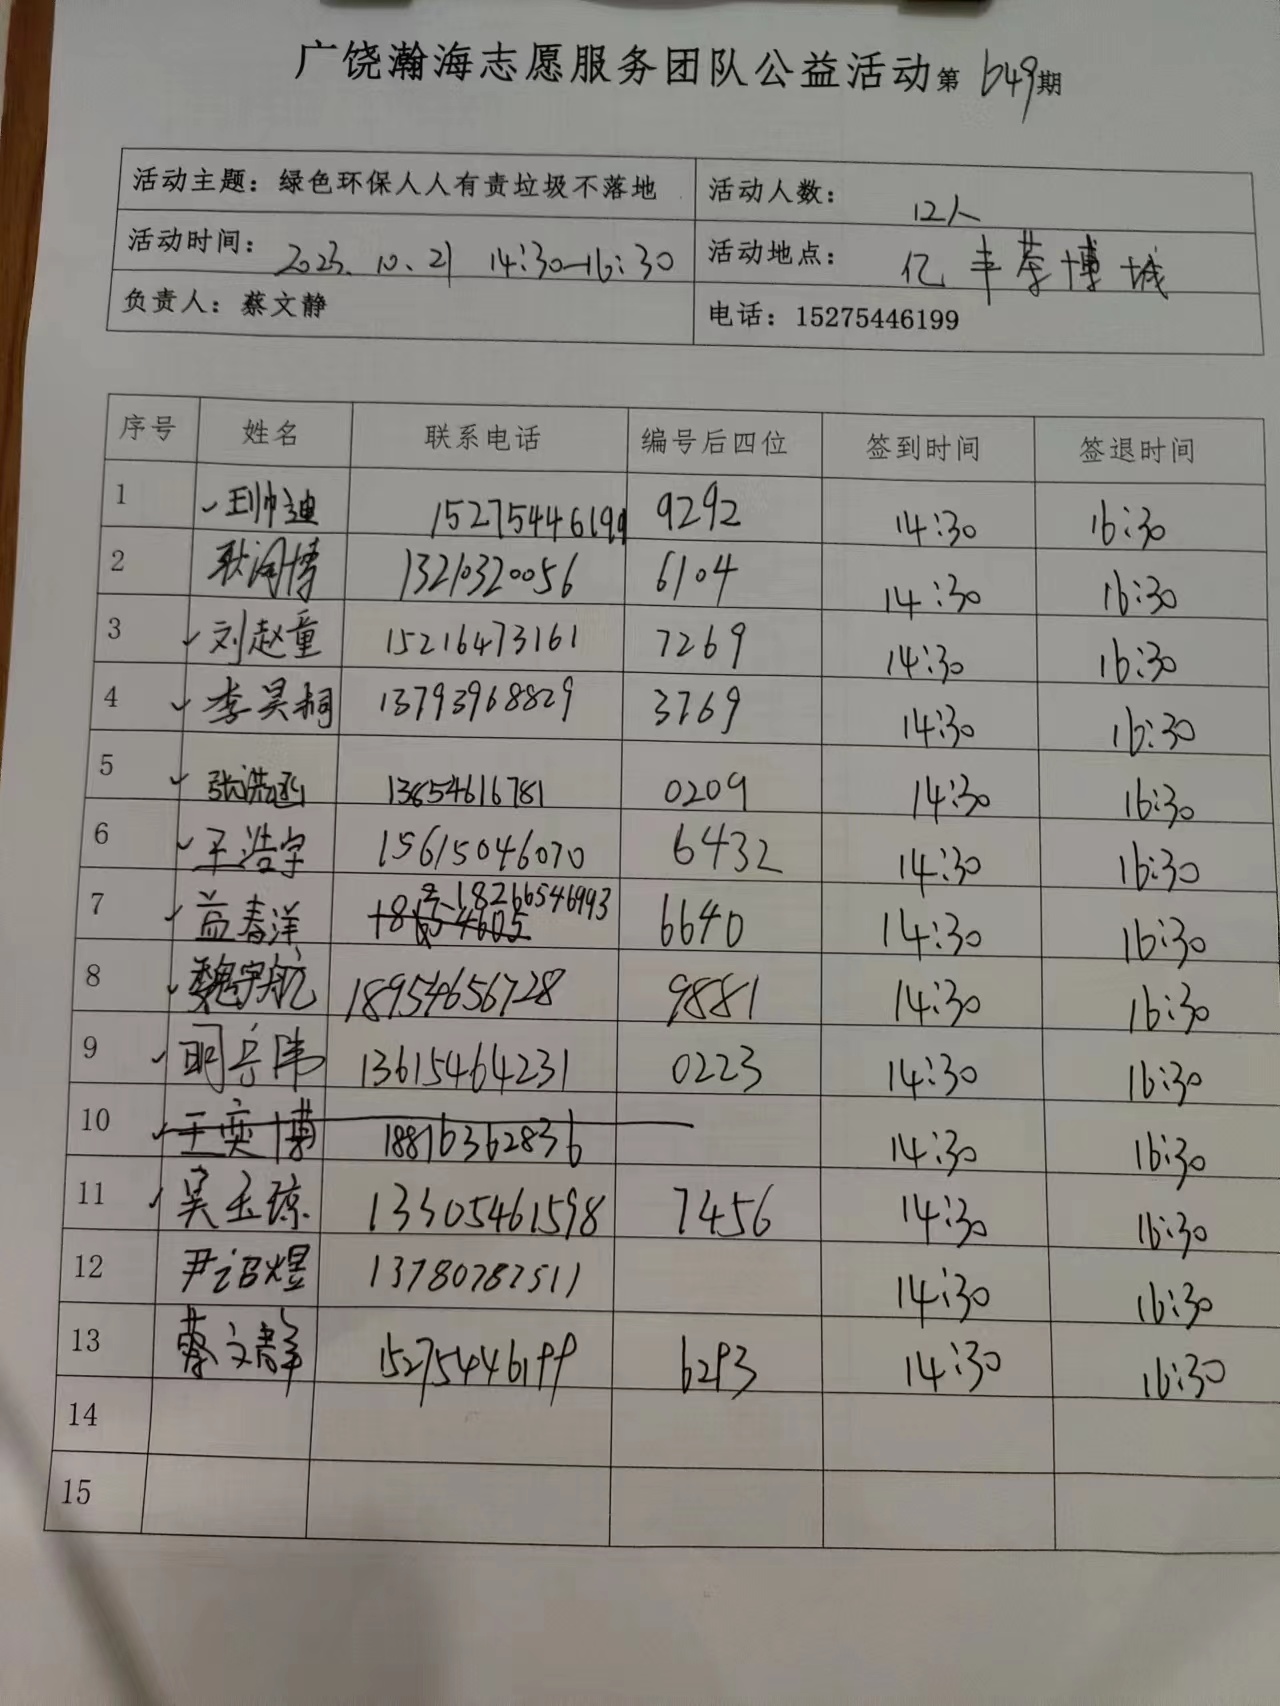 广饶瀚海志愿服务团队公益活动第649期
活动主题：绿色环保人人有责垃圾不落地 活动人数： 12人
活动时间： 2023.10.21 14:30-16:30 活动地点： 亿丰茶博城
负责人：蔡文静 电话：15275446199
序号 姓名 联系电话 编号后四位 签到时间 签退时间
1 王帅迪 15275446199 9292 14:30 16:30
2 耿润博 13210320056 6104 14:30 16:30
3 刘赵童 15216473161 7269 14:30 16:30
4 李昊桐 13793968829 3769 14:30 16:30
5 张浩 13654616781 0209 14:30 16:30
6 王浩宇 15615046070 6432 14:30 16:30
7 益春洋 18266546993 6640 14:30 16:30
8 魏宇航 18954656728 9881 14:30 16:30
9 13615464231 0223 14:30 16:30
10 王奕博 18816362836 14:30 16:30
11 吴玉琼 13305461598 7456 14:30 16:30
12 尹诏煜 13780787511 14:30 16:30
13 蔡文静 15275446199 6293 14:30 16:30
14
15